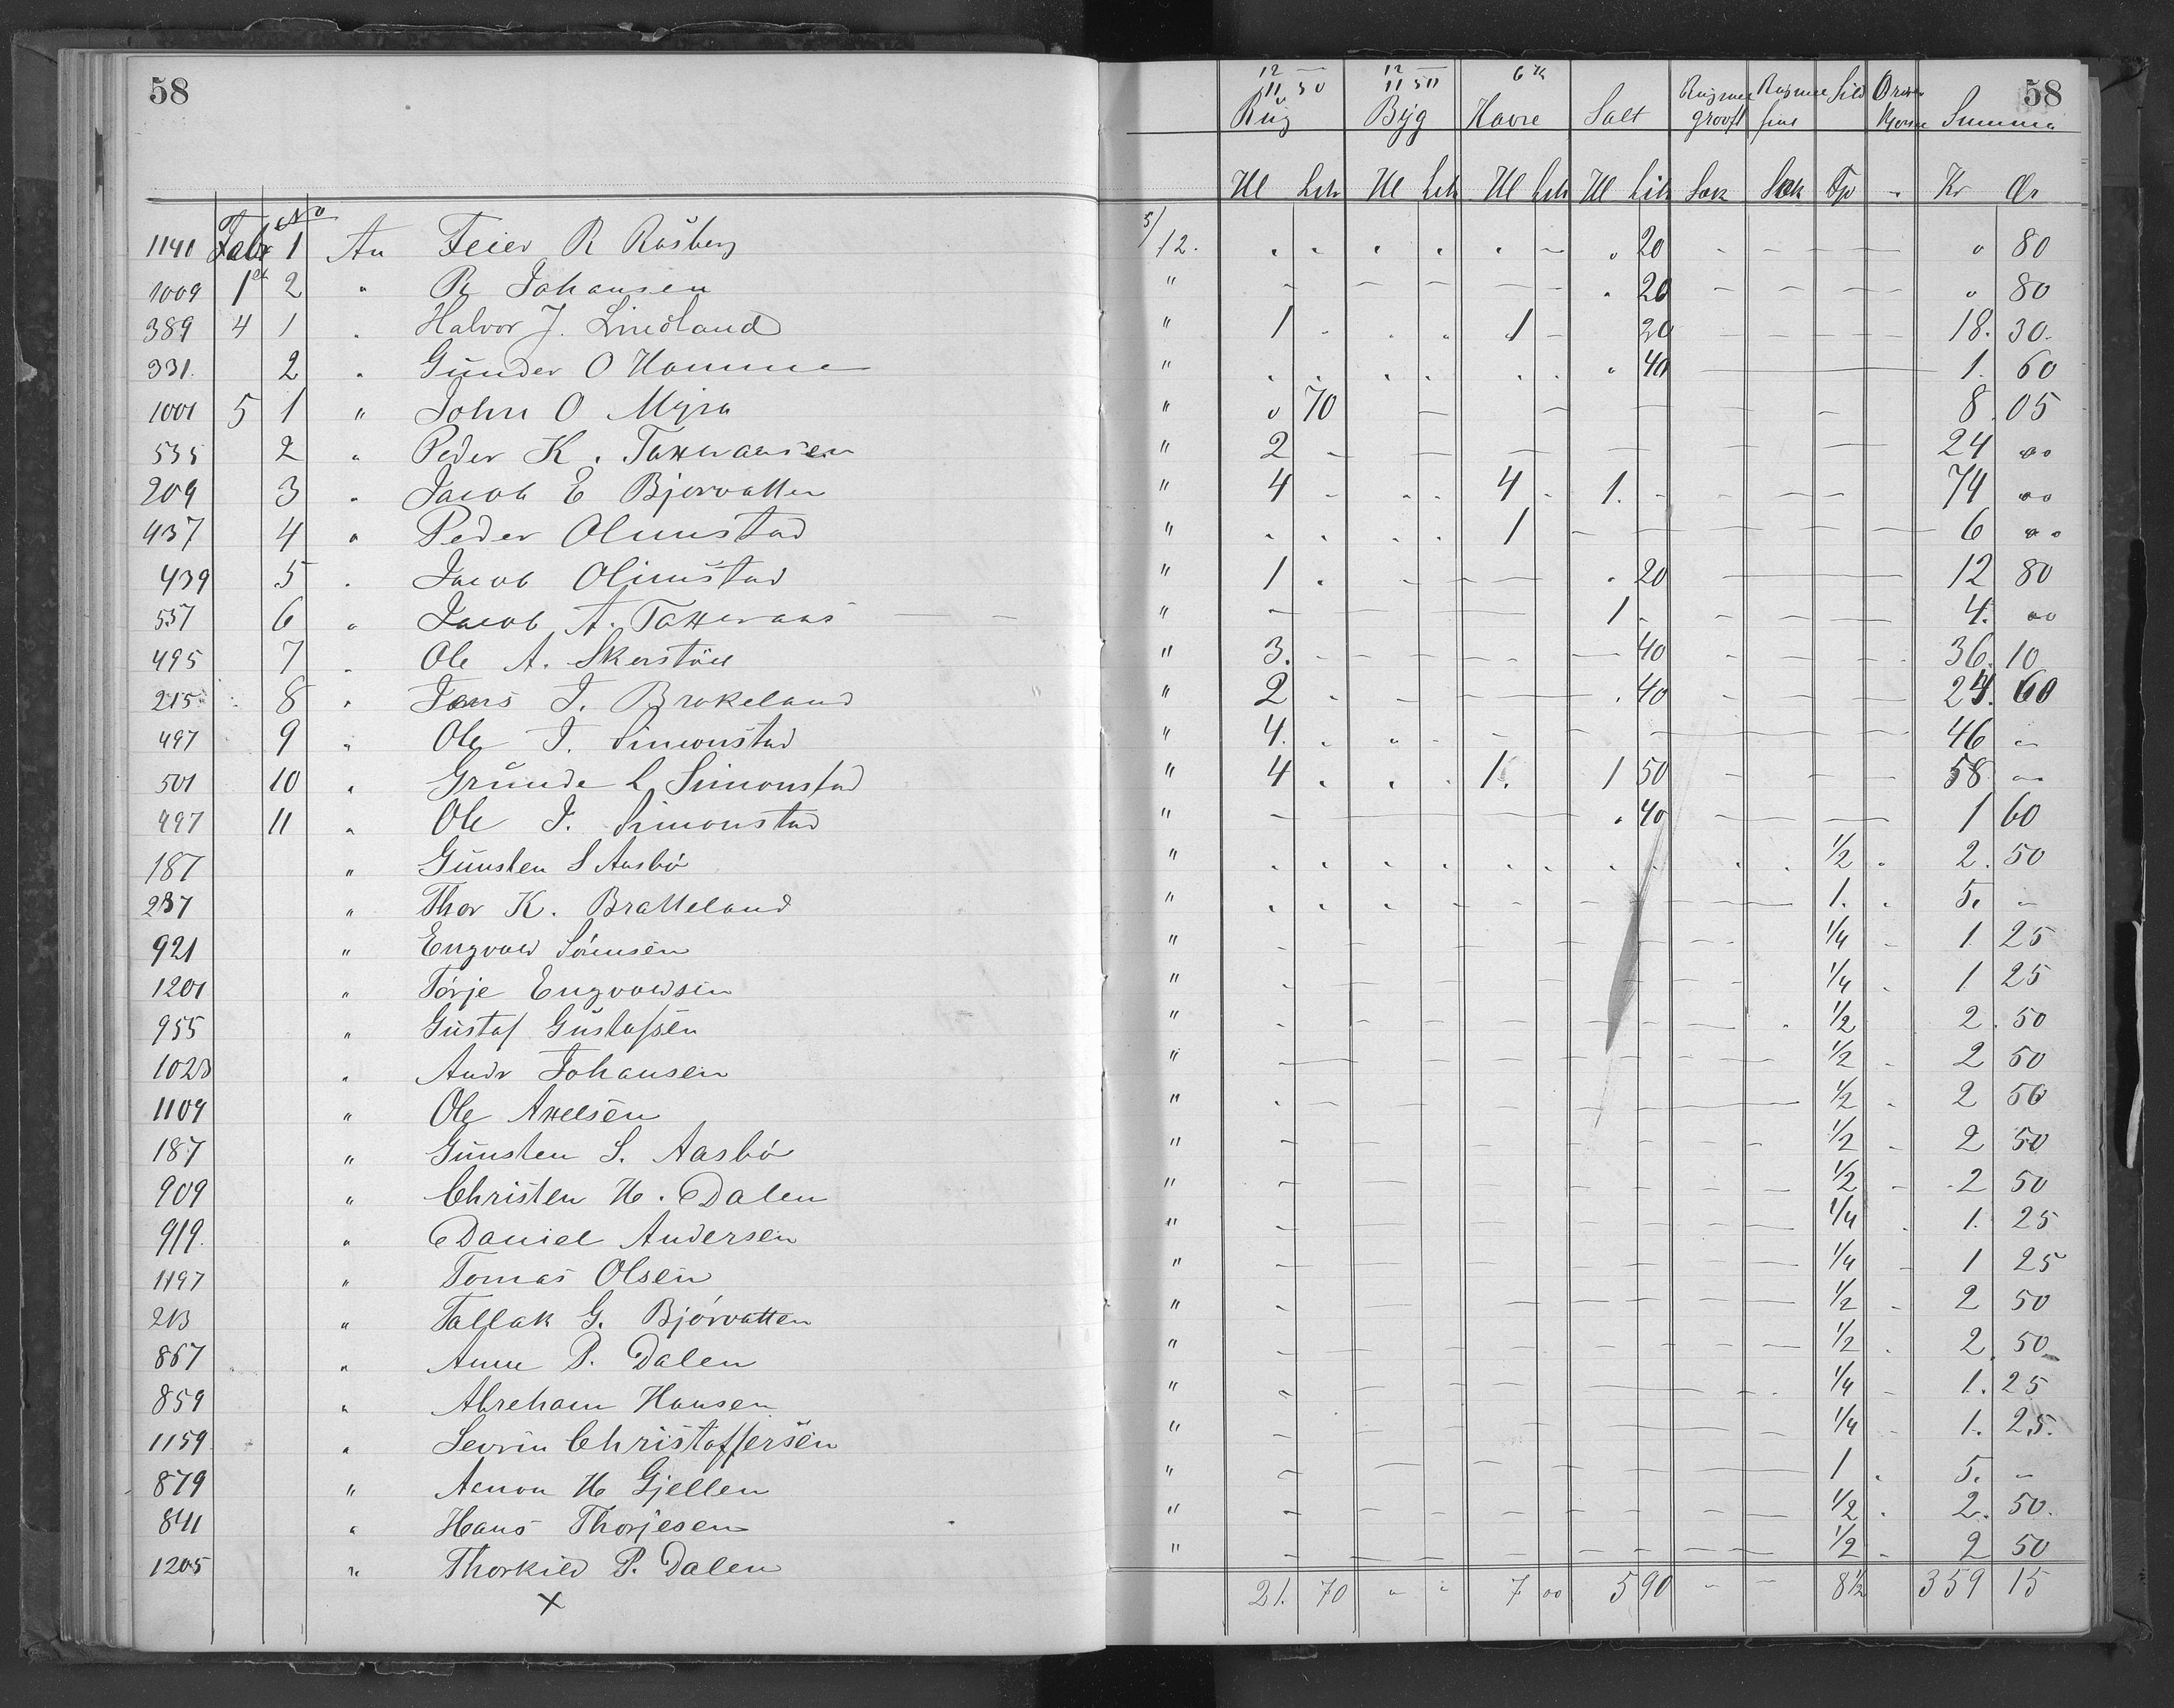 58 58
12 — 12 — 6 Kr
11 50 11 50
Rug Byg Havre Salt Rugmel Rugmel Sild Summa
grovft fint
Hl Litr Hl Litr Hl Litr Hl Litr Sæk Sæk Tp Kr Ør
No
1141 Febr 1 An Feier R Rasberg 5/12. " " " " " — " 20 — — — — " 80
1009 1st 2 " R Johansen " — — — — — — " 20 — — — — " 80
389 4 1 " Halvor J. Lindland " 1 - . . 1 - 20 — — — — 18. 30.
331. 2 " Gunder O Hamme " . . . . . . " 40 — — 1. 60
1001 5 1 " John O Myra " " 70 — — — — — 8. 05
535 2 " Peder K. Taxeraasen " 2 - — — — — — — 24 00
209 3 " Jacob E Bjorvatten " 4 - . . 4 - 1. - - — — 74 00
437 4 " Peder Olimstad " . . . . 1 — — — — — 6 00
439 5 " Jacob Olimstad " 1 . - — — . 20 — — 12 80
537 6 " Jacob A. Taxeraas — — " — — — — 1 - — — — — 4. 00
495 7 " Ole A. Skerstöll " 3. - — — — — 40 — — — 36. 10
215 8 " Jens J. Brokeland " 2 . - — — . 40 - — — 24. 60
497 9 " Ole J. Simonstad " 4. . " - — — — — — — 46 "
501 10 " Grunde L Simonstad " 4 . . . 1. 1 50 — — — 58 "
497 11 " Ole J. Simonstad " — — — — . 40 — — — 1 60
187 " Gunsten S Aasbø " . . . . . . . . . . 1/2 . 2. 50
237 " Thor K. Bratteland " . . . - - — — — — — 1. . 5. "
921 " Engvold Sörnsen " - — — — — — — — 1/4 - 1. 25
1201 " Törje Engvoldsen " . — — — — — — — 1/4 . 1 25
955 " Gustaf Gustafsen " . — — — — — — . 1/2 2. 50
1023 " Andr Johansen " — — — — — — — — 1/2 . 2 50
1109 " Ole Axelsen " . — — — — — — — 1/2 . 2 50
187 " Gunsten S. Aasbø " — — — — — — — — 1/2 - 2 50
909 " Christen H. Dalen " — — — — — — — — 1/2 - 2 50
919. " Daniel Andersen " — — — — — — — — 1/4 . 1. 25
1197 " Tomas Olsen " — — — — — — — — 1/4 - 1 25
213 " Tallak G. Bjørvatten " — — — — — — — — 1/2 . 2 50
867 " Anne P. Dalen " — — — — — — — — 1/2 . 2. 50
859 " Abreham Hansen " — — — — — — — . 1/4 - 1. 25
1159 " Sevrin Christoffersen " — — — — — — — — 1/4 - 1. 25.
879 " Aanon H Gjellen " — — — — — — — — 1 . 5. "
841 " Hans Thorjesen " — — — — — — — — 1/2 . 2. 50.
1205 " Thorkild P. Dalen " — — — — — — — — 1/2 - 2 50
x 21. 70 " " 7 00 5 90 - - 8 1/2 359 15